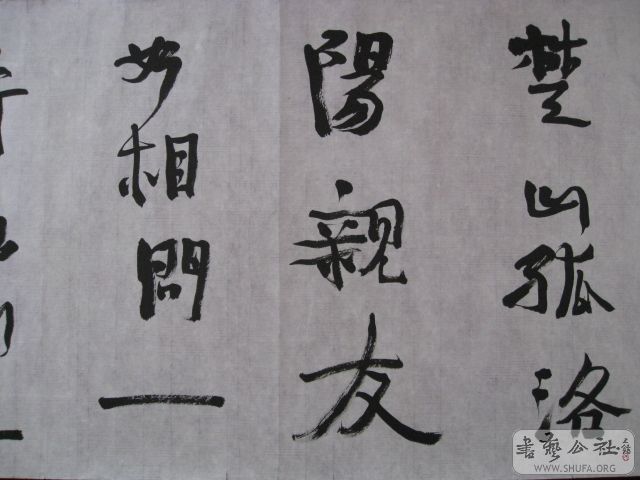 楚山孤洛
陽親友
如相問一
書藝公社
WWW.SHUFA.ORG